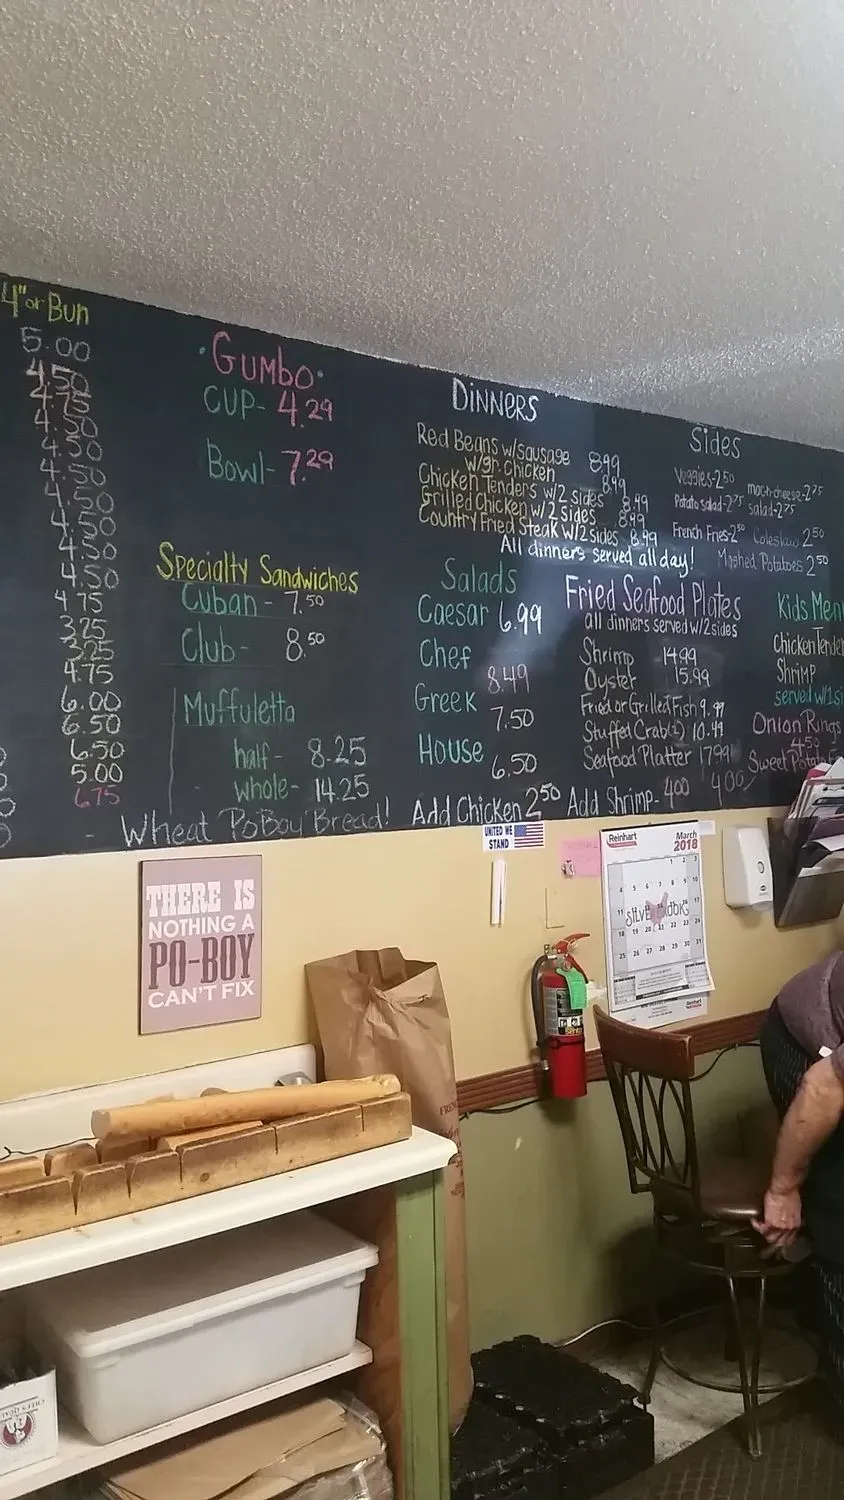 4" or Bun
5.00
4.50
4.75
4.50
4.50
4.50
4.50
4.50
4.50
4.75
3.25
3.25
4.75
6.00
6.50
6.50
5.00
6.75
Gumbo
CUP- 4.29
Bowl- 7.29
Specialty Sandwiches
Cuban - 7.50
Club - 8.50
Muffuletta
half - 8.25
whole - 14.25
- Wheat PoBoy Bread!
DINNERS
Red Beans w/sausage 8.99
w/gr. chicken 8.99
Chicken Tenders w/2 sides 8.49
Grilled Chicken w/2 sides 8.49
Country Fried Steak w/2 sides 8.99
All dinners served all day!
Salads
Caesar 6.99
Chef 8.49
Greek 7.50
House 6.50
Add Chicken 2.50
Sides
Veggies-2.50 mac+cheese-2.75
Potato salad-2.75 salad-2.75
French Fries-2.50 Coleslaw 2.50
Mashed Potatoes 2.50
Fried Seafood Plates
all dinners served w/2 sides
Shrimp 14.99
Oyster 15.99
Fried or Grilled Fish 9.99
Stuffed Crab(2) 10.49
Seafood Platter 17.99
Add Shrimp- 4.00
Kids Men
Chicken Tende
Shrimp
served w/1 si
Onion Rings
4.50
Sweet Potato
4.00
THERE IS
NOTHING A
PO-BOY
CAN'T FIX
UNITED WE
STAND
Reinhart
March
2018
1 2 3
4 5 6 7 8 9 10
11 17
18 19 20 21 22 23 24
25 26 27 28 29 30 31
Reinhart